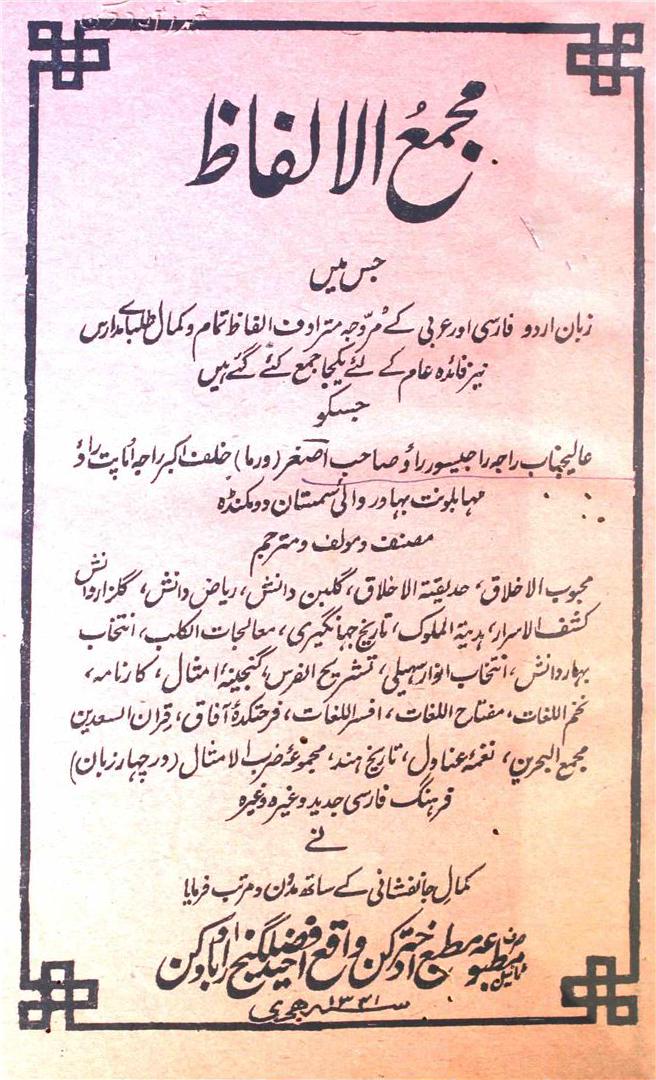 مجمعُ الالفاظ
جس میں
زبان اردو فارسی اور عربی کے مُروّجہ مترادف الفاظ تمام و کمال طلبائے مدارس
نیز فائدہ عام کے لئے یکجا جمع کئے گئے ہیں
جسکو
عالیجناب راجہ راجیسور راؤ صاحب اصغر (ورما) خلف اکبر راجہ اُناپت راؤ
مہابلونت بہادر والئ سمستان دومکنڈہ
مصنف و مولف و مترجم
محبوب الاخلاق، حدیقتہ الاخلاق، گلبن دانش، ریاض دانش، گلزار دانش
کشف الاسرار، ہدیۃ الملوک، تاریخ جہانگیری، معالجات الکلب، انتخاب
بہار دانش، انتخاب انوار سہیلی، تشریح الفرس، گنجینۂ امثال، کارنامہ،
نجم اللغات، مفتاح اللغات، افسر اللغات، فرحتکدۂ آفاق، قِران السعدین
مجمع البحرین، نغمۂ عنادل، تاریخ ہند، مجموعۂ ضرب الامثال (در چہار زبان)
فرہنگ فارسی جدید وغیرہ وغیرہ
نے
کمال جانفشانی کے ساتھ مدُن و مرتب فرمایا
مطبوعہ مطبع اختر دکن واقع افضلگنج حیدرآباد دکن
سنہ ۱۳۳۱ ہجری